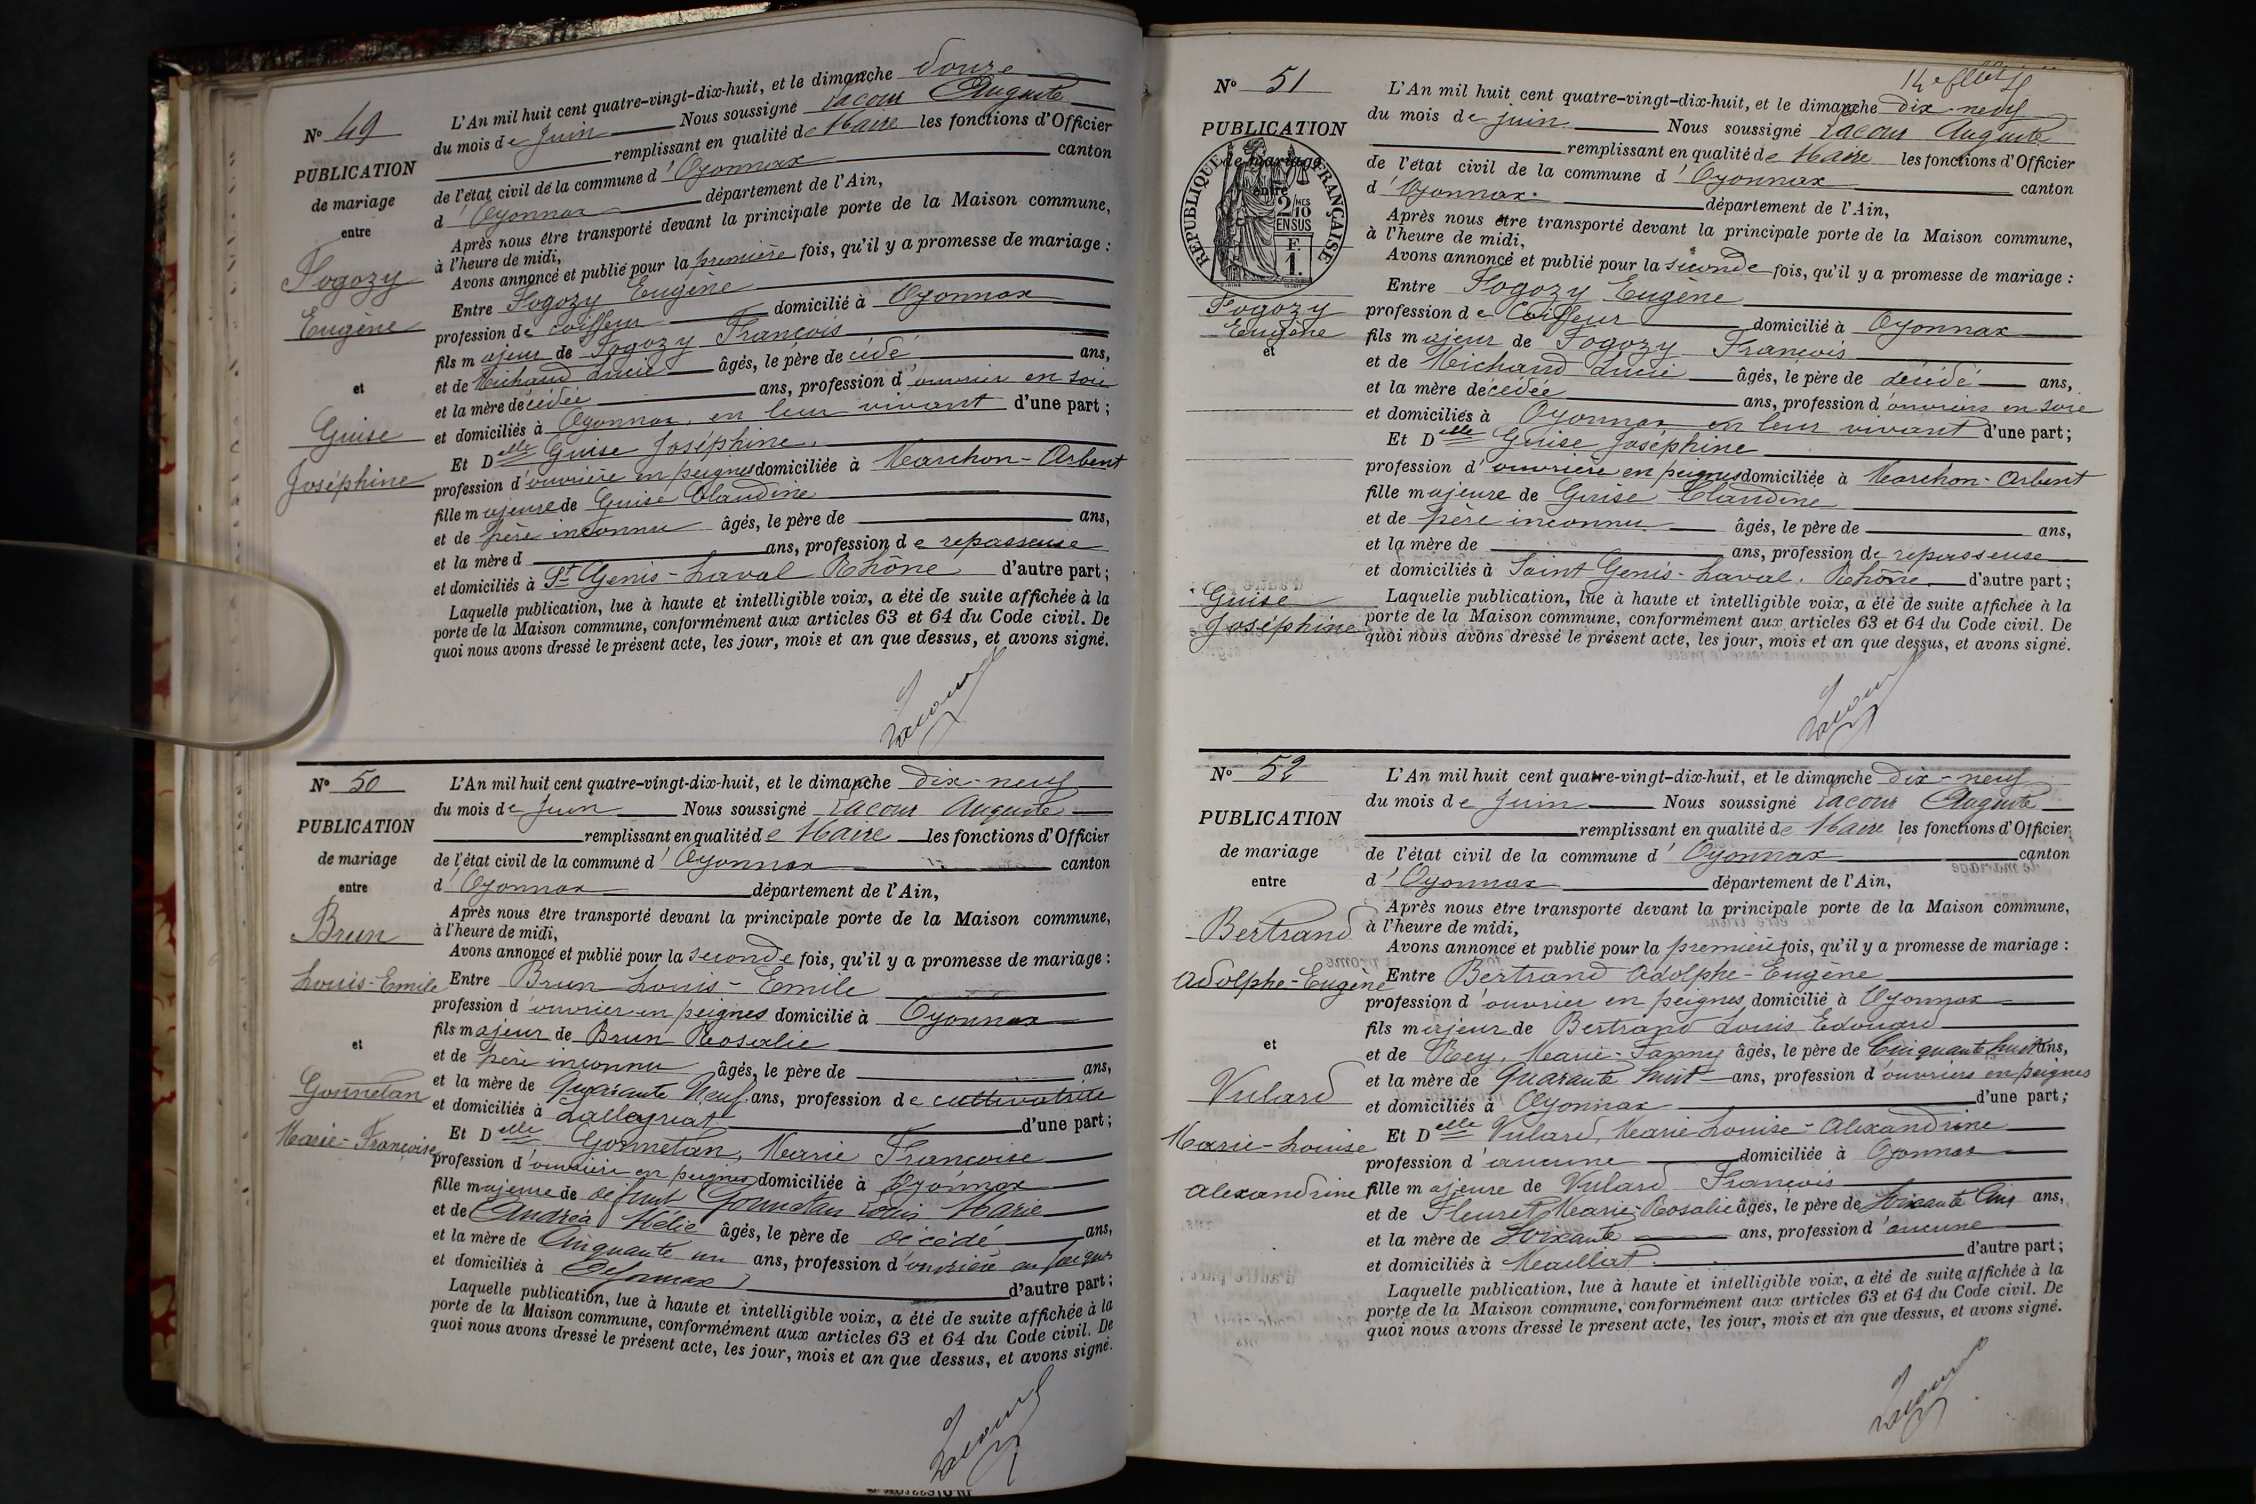 N° 49
PUBLICATION
de mariage
entre
Fogozy
Eugène
et
Guise
Joséphine
L'An mil huit cent quatre-vingt-dix-huit, et le dimanche douze
du mois de Juin Nous soussigné Lacour Auguste
remplissant en qualité de Maire les fonctions d'Officier
de l'état civil de la commune d'Oyonnax canton
d'Oyonnax département de l'Ain,
Après nous être transporté devant la principale porte de la Maison commune,
à l'heure de midi,
Avons annoncé et publié pour la première fois, qu'il y a promesse de mariage :
Entre Fogozy Eugène
profession de coiffeur domicilié à Oyonnax
fils majeur de Fogozy François
et de Michaud Lucie âgés, le père de cédé ans,
et la mère decédée ans, profession d'ouvrier en soie
et domiciliés à Oyonnax, en leur vivant d'une part ;
Et Delle Guise Joséphine.
profession d'ouvrière en peignes domiciliée à Marchon-Arbent
fille majeure de Guise Claudine
et de père inconnu âgés, le père de ans,
et la mère d ans, profession de repasseuse
et domiciliés à St Genis-Laval Rhône d'autre part ;
Laquelle publication, lue à haute et intelligible voix, a été de suite affichée à la
porte de la Maison commune, conformément aux articles 63 et 64 du Code civil. De
quoi nous avons dressé le présent acte, les jour, mois et an que dessus, et avons signé.
Lacour
N° 50
PUBLICATION
de mariage
entre
Brun
Louis-Emile
et
Gonnetan
Marie-Françoise
L'An mil huit cent quatre-vingt-dix-huit, et le dimanche dix-neuf
du mois de Juin Nous soussigné Lacour Auguste
remplissant en qualité de Maire les fonctions d'Officier
de l'état civil de la commune d'Oyonnax canton
d'Oyonnax département de l'Ain,
Après nous être transporté devant la principale porte de la Maison commune,
à l'heure de midi,
Avons annoncé et publié pour la seconde fois, qu'il y a promesse de mariage :
Entre Brun Louis-Emile
profession d'ouvrier en peignes domicilié à Oyonnax
fils majeur de Brun Rosalie
et de père inconnu âgés, le père de ans,
et la mère de Quarante Neuf ans, profession de cultivatrice
et domiciliés à Lalleyriat d'une part ;
Et Delle Gonnetan, Marie Françoise
profession d'ouvrière en peignes domiciliée à Oyonnax
fille majeure de defunt Gonnetan Louis Marie
et de Andréa Mélie âgés, le père de décédé ans,
et la mère de Cinquante un ans, profession d'ouvrière en peignes
et domiciliés à Oyonnax d'autre part ;
Laquelle publication, lue à haute et intelligible voix, a été de suite affichée à la
porte de la Maison commune, conformément aux articles 63 et 64 du Code civil. De
quoi nous avons dressé le présent acte, les jour, mois et an que dessus, et avons signé.
Lacour
N° 51
PUBLICATION
de mariage
entre
RÉPUBLIQUE FRANÇAISE
2/10 MES
EN SUS
F.
1.
Fogozy
Eugène
et
Guise
Joséphine
L'An mil huit cent quatre-vingt-dix-huit, et le dimanche dix-neuf
du mois de juin Nous soussigné Lacour Auguste
remplissant en qualité de Maire les fonctions d'Officier
de l'état civil de la commune d'Oyonnax canton
d'Oyonnax département de l'Ain,
Après nous être transporté devant la principale porte de la Maison commune,
à l'heure de midi,
Avons annoncé et publié pour la seconde fois, qu'il y a promesse de mariage :
Entre Fogozy Eugène
profession de Coiffeur domicilié à Oyonnax
fils majeur de Fogozy François
et de Michaud Lucie âgés, le père de décédé ans,
et la mère décédée ans, profession d'ouvriers en soie
et domiciliés à Oyonnax en leur vivant d'une part ;
Et Delle Guise Joséphine
profession d'ouvrière en peignes domiciliée à Marchon-Arbent
fille majeure de Guise Claudine
et de père inconnu âgés, le père de ans,
et la mère de ans, profession de repasseuse
et domiciliés à Saint Genis-Laval. Rhône d'autre part ;
Laquelle publication, lue à haute et intelligible voix, a été de suite affichée à la
porte de la Maison commune, conformément aux articles 63 et 64 du Code civil. De
quoi nous avons dressé le présent acte, les jour, mois et an que dessus, et avons signé.
Lacour
N° 52
PUBLICATION
de mariage
entre
Bertrand
Adolphe-Eugène
et
Vulard
Marie-Louise
Alexandrine
L'An mil huit cent quatre-vingt-dix-huit, et le dimanche dix-neuf
du mois de Juin Nous soussigné Lacour Auguste
remplissant en qualité de Maire les fonctions d'Officier
de l'état civil de la commune d'Oyonnax canton
d'Oyonnax département de l'Ain,
Après nous être transporté devant la principale porte de la Maison commune,
à l'heure de midi,
Avons annoncé et publié pour la première fois, qu'il y a promesse de mariage :
Entre Bertrand Adolphe-Eugène
profession d'ouvrier en peignes domicilié à Oyonnax
fils majeur de Bertrand Louis Edouard
et de Rey, Marie-Fanny âgés, le père de Cinquante huit ans,
et la mère de Quarante huit ans, profession d'ouvriers en peignes
et domiciliés à Oyonnax d'une part ;
Et Delle Vulard, Marie Louise-Alexandrine
profession d'aucune domiciliée à Oyonnax
fille majeure de Vulard François
et de Fleuret Marie-Rosalie âgés, le père de Soixante Cinq ans,
et la mère de Soixante ans, profession d'aucune
et domiciliés à Maillat. d'autre part ;
Laquelle publication, lue à haute et intelligible voix, a été de suite affichée à la
porte de la Maison commune, conformément aux articles 63 et 64 du Code civil. De
quoi nous avons dressé le présent acte, les jour, mois et an que dessus, et avons signé.
Lacour